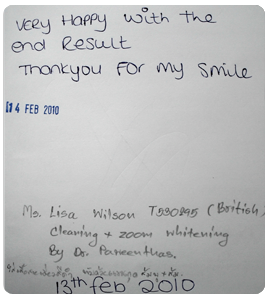 VERY HAPPY WITH THE
end RESULT
THANKYOU FOR MY SMILE
14 FEB 2010
Ms. Lisa Wilson T590895 (British)
Cleaning + zoom whitening
By Dr. Paweenthas.
13th feb, 2010